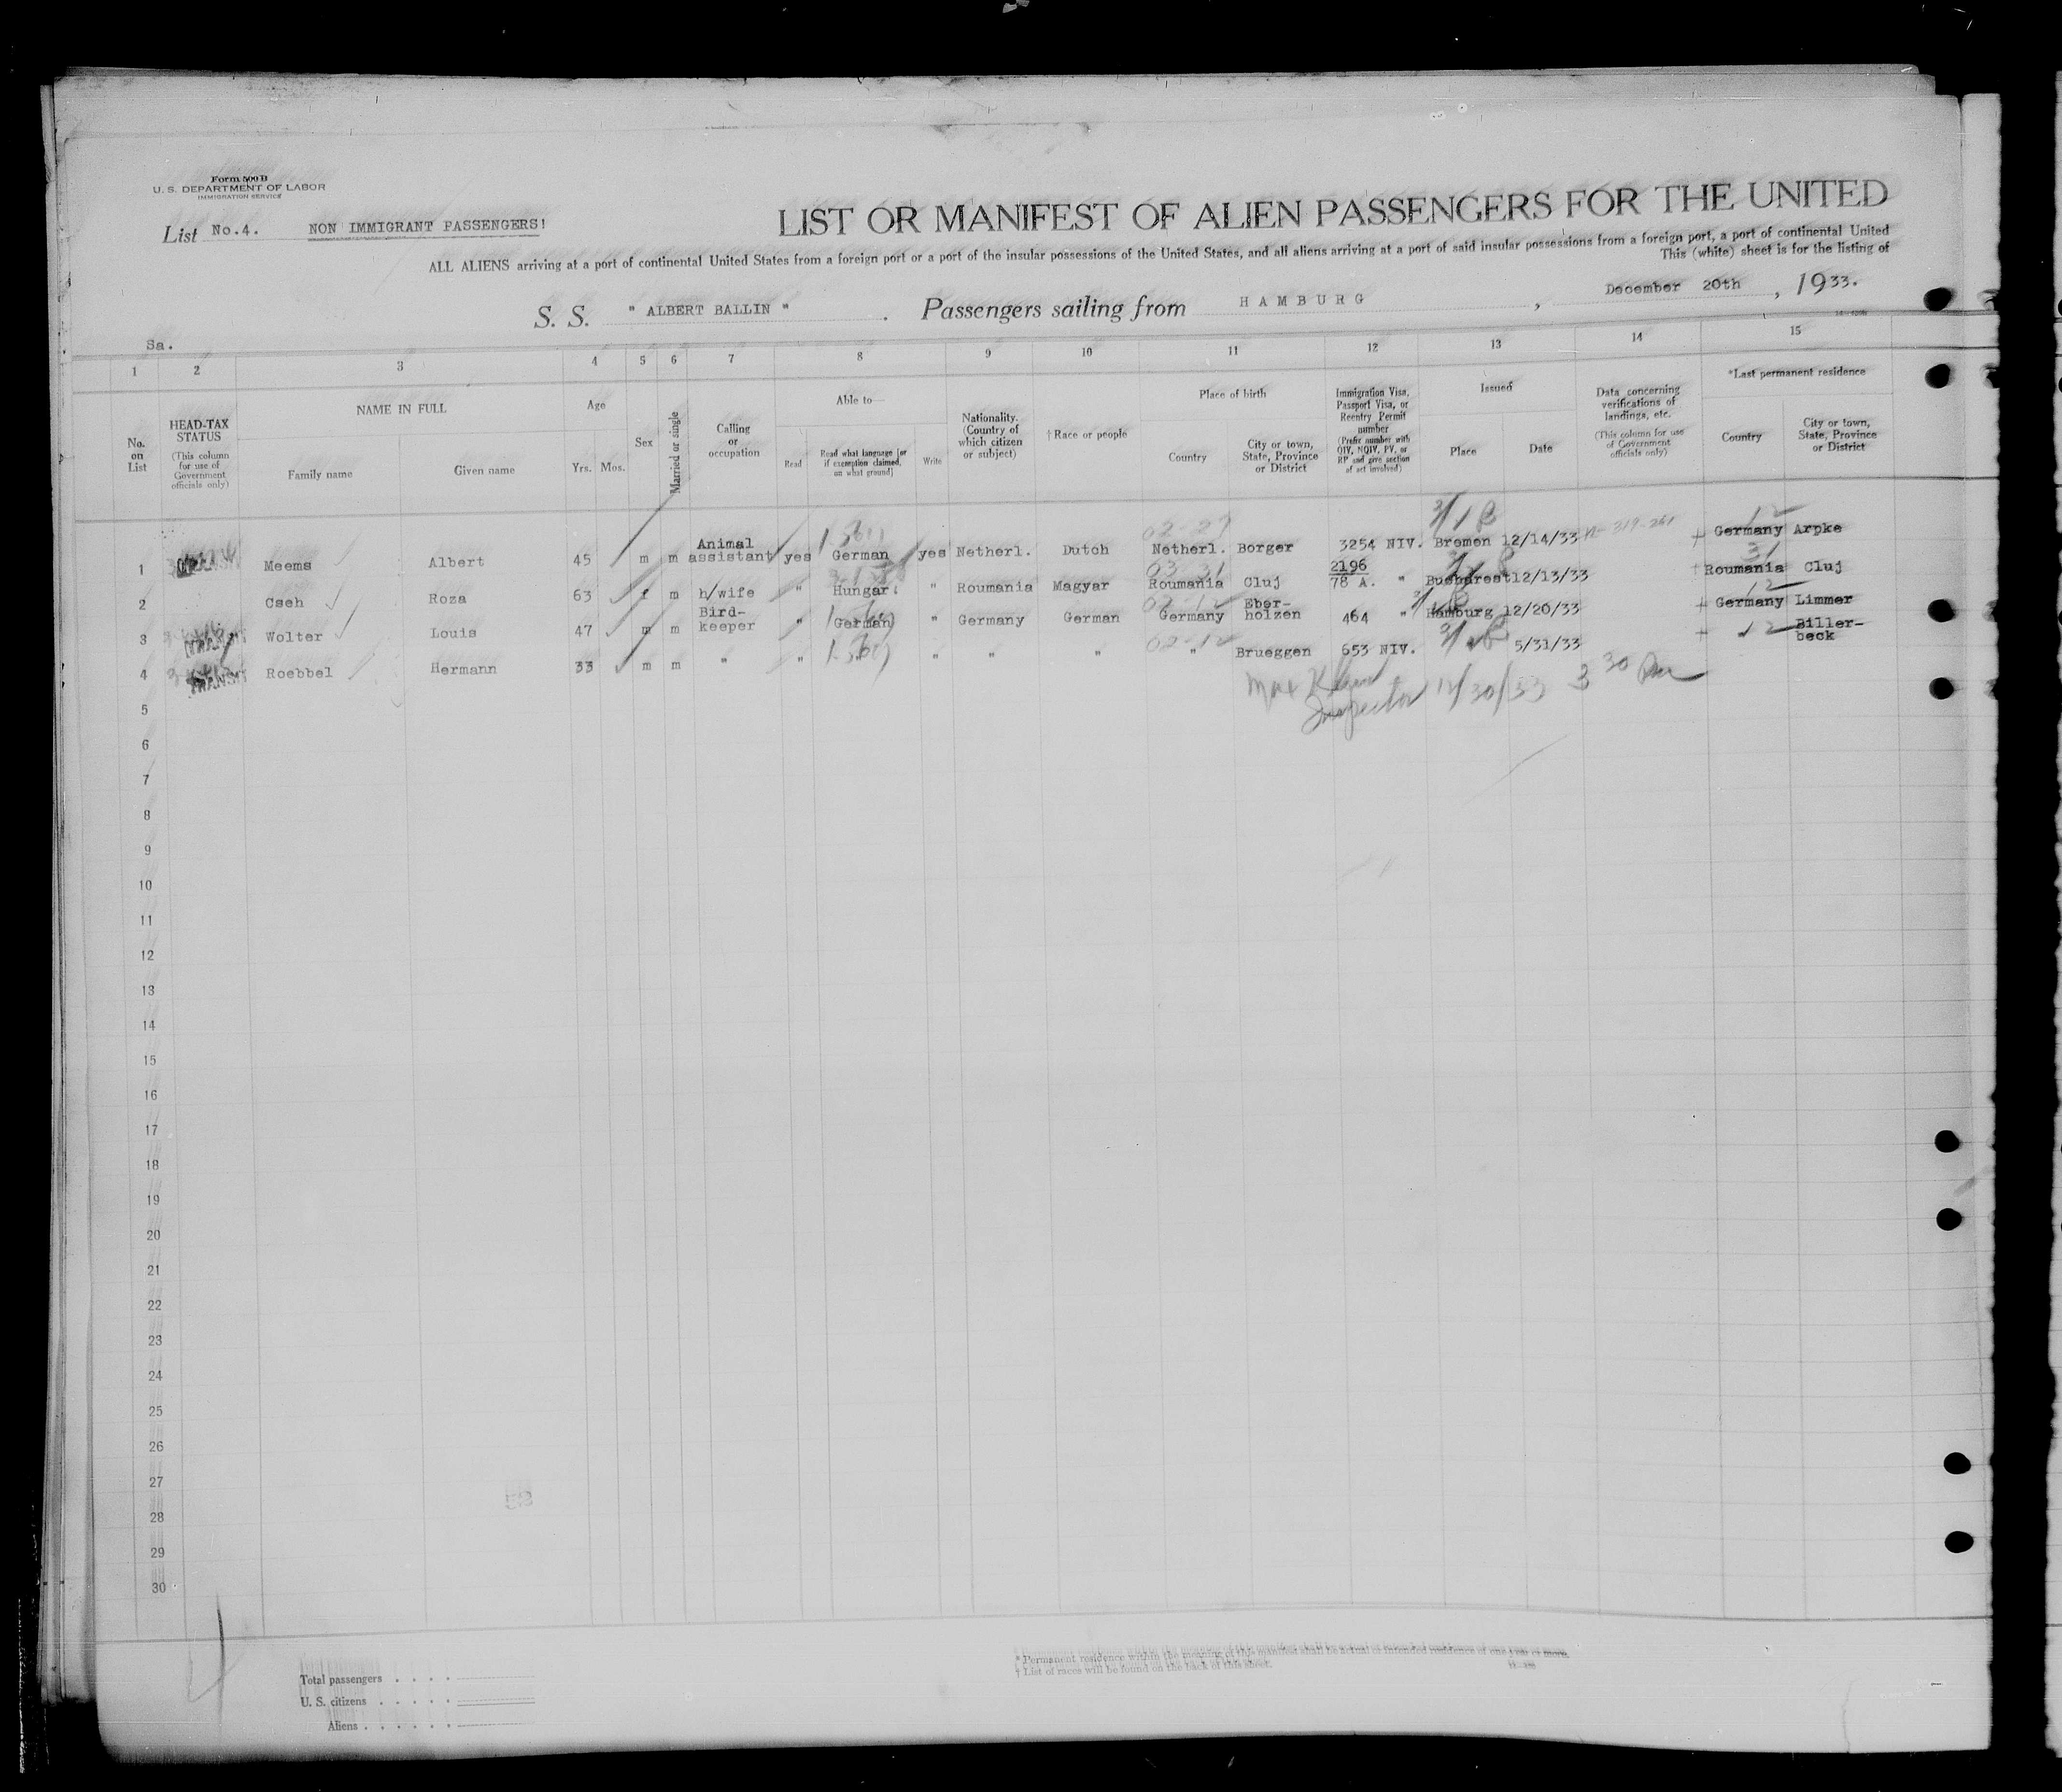 Form 500 B
U. S. DEPARTMENT OF LABOR
IMMIGRATION SERVICE
List No.4. NON IMMIGRANT PASSENGERS!
LIST OR MANIFEST OF ALIEN PASSENGERS FOR THE UNITED
ALL ALIENS arriving at a port of continental United States from a foreign port or a port of the insular possessions of the United States, and all aliens arriving at a port of said insular possessions from a foreign port, a port of continental United
This (white) sheet is for the listing of
S. S. " ALBERT BALLIN " . Passengers sailing from HAMBURG , December 20th , 1933.
Sa.
1 2 3 4 5 6 7 8 9 10 11 12 13 14 15
No. on List
HEAD-TAX STATUS (This column for use of Government officials only)
NAME IN FULL
Family name Given name
Age
Yrs. Mos.
Sex
Married or single
Calling or occupation
Able to—
Read
Read what language [or if exemption claimed, on what ground]
Write
Nationality. (Country of which citizen or subject)
†Race or people
Place of birth
Country
City or town, State, Province or District
Immigration Visa, Passport Visa, or Reentry Permit number (Prefix number with QIV, NQIV, PV, or RP and give section of act involved)
Issued
Place Date
Data concerning verifications of landings, etc. (This column for use of Government officials only)
*Last permanent residence
Country
City or town, State, Province or District
1 Meems Albert 45 m m Animal assistant yes German yes Netherl. Dutch Netherl. Borger 3254 NIV. Bremen 12/14/33 Germany Arpke
2 Cseh Roza 63 f m h/wife " Hungar. " Roumania Magyar Roumania Cluj 2196 78 A. " Bucharest 12/13/33 Roumania Cluj
3 Wolter Louis 47 m m Bird-keeper " German " Germany German Germany Eber-holzen 464 " Hamburg 12/20/33 Germany Limmer
4 Roebbel Hermann 33 m m " " " " " " " Brueggen 653 NIV. 5/31/33 " Biller-beck
Inspector 12/30/33 3 30 Pm
5
6
7
8
9
10
11
12
13
14
15
16
17
18
19
20
21
22
23
24
25
26
27
28
29
30
Total passengers
U. S. citizens
Aliens
* Permanent residence within the meaning of this manifest shall be actual or intended residence of one year or more.
† List of races will be found on the back of this sheet.